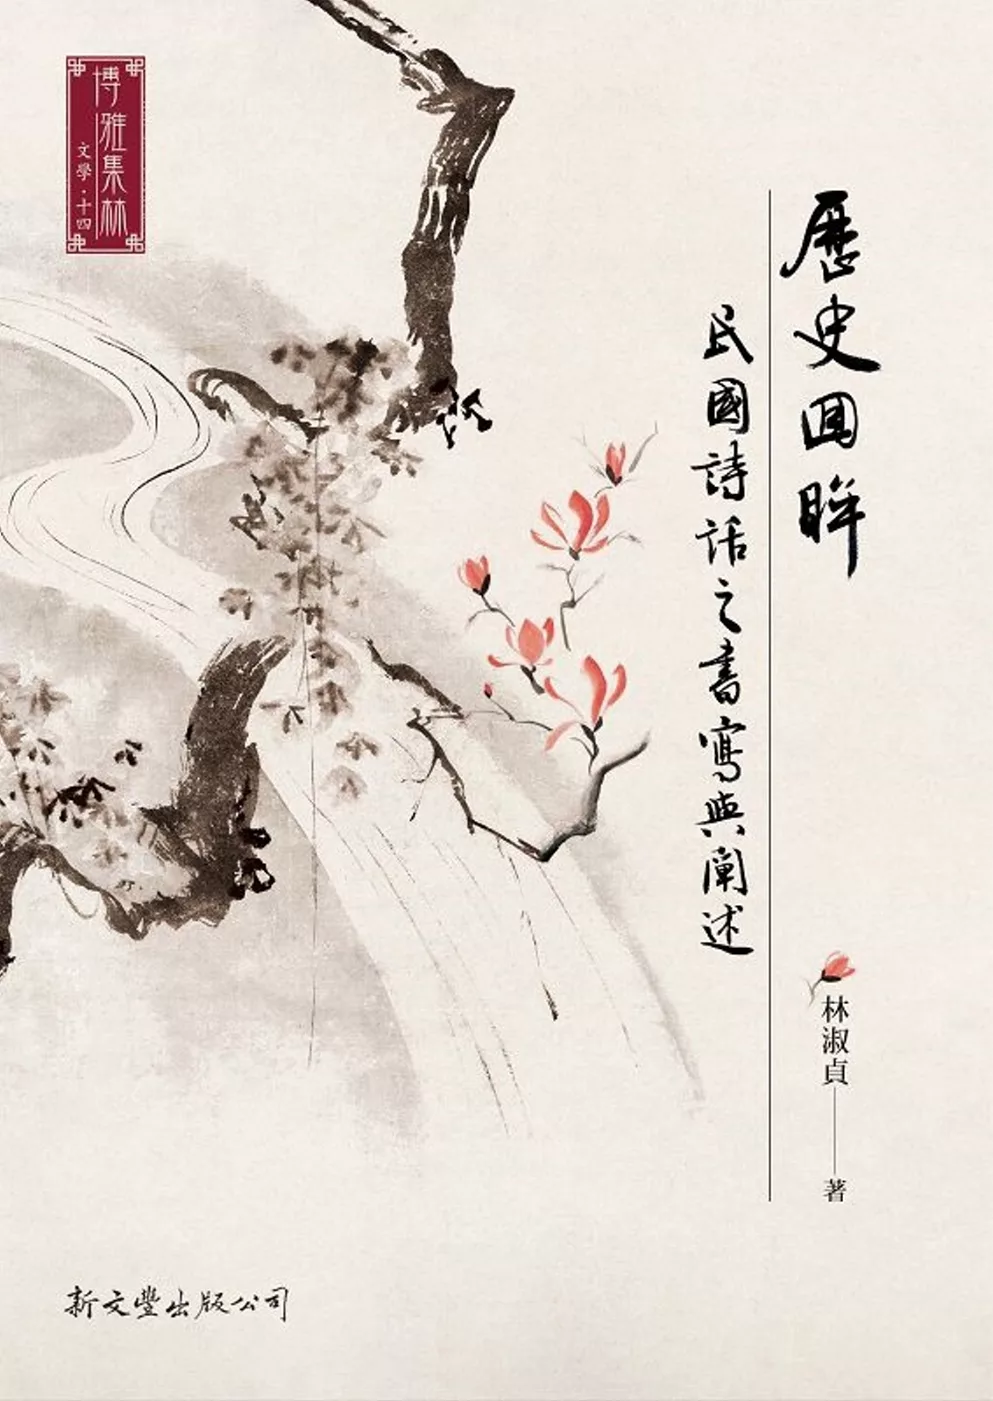 歷史回眸
民國詩話之書寫與闡述
林淑貞
著
博雅集林
文學・十四
新文豐出版公司